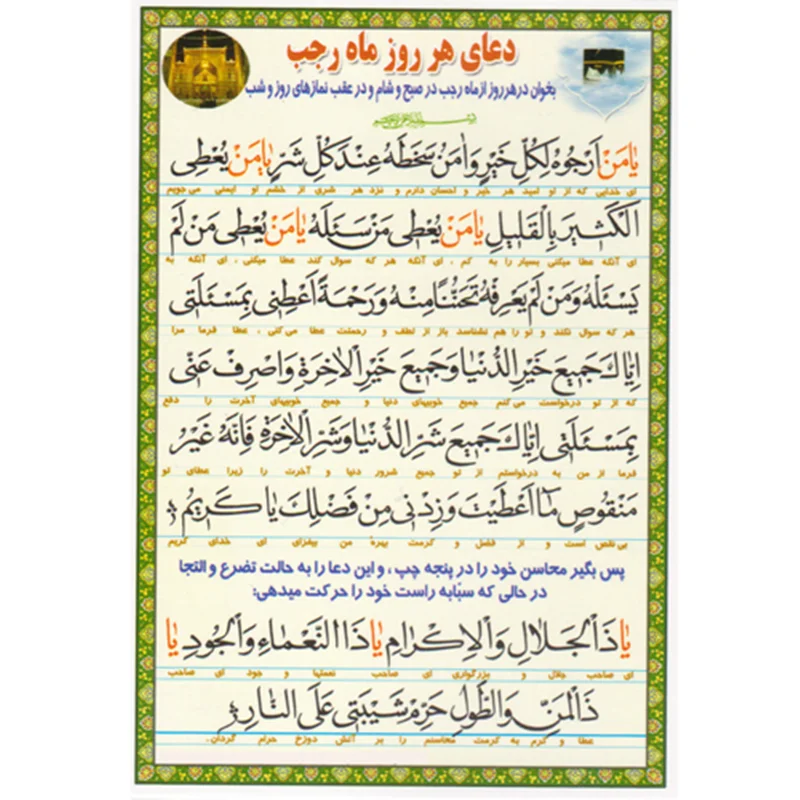 دعای هر روز ماه رجب
بخوان در هر روز از ماه رجب در صبح و شام و در عقب نمازهای روز و شب
بسم الله الرحمن الرحیم
یٰا مَنْ اَرْجُوهُ لِکُلِّ خَیْرٍ وَ اٰمَنُ سَخَطَهُ عِنْدَ کُلِّ شَرٍّ یٰا مَنْ یُعْطِی
ای خدایی که از او امید هر خیر و احسان دارم و نزد هر شری از خشم او ایمنی می جویم
الْکَثیرَ بِالْقَلیلِ یٰا مَنْ یُعْطی مَنْ سَئَلَهُ یٰا مَنْ یُعْطی مَنْ لَمْ
ای آنکه عطا میکنی بسیار را به کم ، ای آنکه هر که سوال کند عطا میکنی ، ای آنکه به
یَسْئَلْهُ وَ مَنْ لَمْ یَعْرِفْهُ تَحَنُّنًا مِنْهُ وَ رَحْمَةً اَعْطِنی بِمَسْئَلَتی
هر که سوال نکند و تو را هم نشناسد باز از لطف و رحمتت عطا می کنی ، عطا فرما مرا
اِیّٰاکَ جَمیعَ خَیْرِ الدُّنْیٰا وَ جَمیعَ خَیْرِ الْاٰخِرَةِ وَاصْرِفْ عَنّی
که از تو درخواست می کنم جمیع خوبیهای دنیا و جمیع خوبیهای آخرت را و دفع
بِمَسْئَلَتی اِیّٰاکَ جَمیعَ شَرِّ الدُّنْیٰا وَ شَرِّ الْاٰخِرَةِ فَاِنَّهُ غَیْرُ
فرما از من به درخواستم از تو جمیع شرور دنیا و آخرت را زیرا عطای تو
مَنْقُوصٍ مٰا اَعْطَیْتَ وَ زِدْنی مِنْ فَضْلِکَ یٰا کَریمُ
بی نقص است و از فضل و کرمت بهرهٔ من بیفزای ای خدای کریم
پس بگیر محاسن خود را در پنجه چپ ، و این دعا را به حالت تضرع و التجا
در حالی که سبّابه راست خود را حرکت میدهی:
یٰا ذَا الْجَلٰالِ وَ الْاِکْرٰامِ یٰا ذَا النَّعْمٰاءِ وَ الْجُودِ یٰا
ای صاحب جلال و بزرگواری ای صاحب نعمتها و جود ای صاحب
ذَا الْمَنِّ وَ الطَّوْلِ حَرِّمْ شَیْبَتی عَلَی النّٰارِ
عطا و کرم به کرمت محاسنم را بر آتش دوزخ حرام گردان.